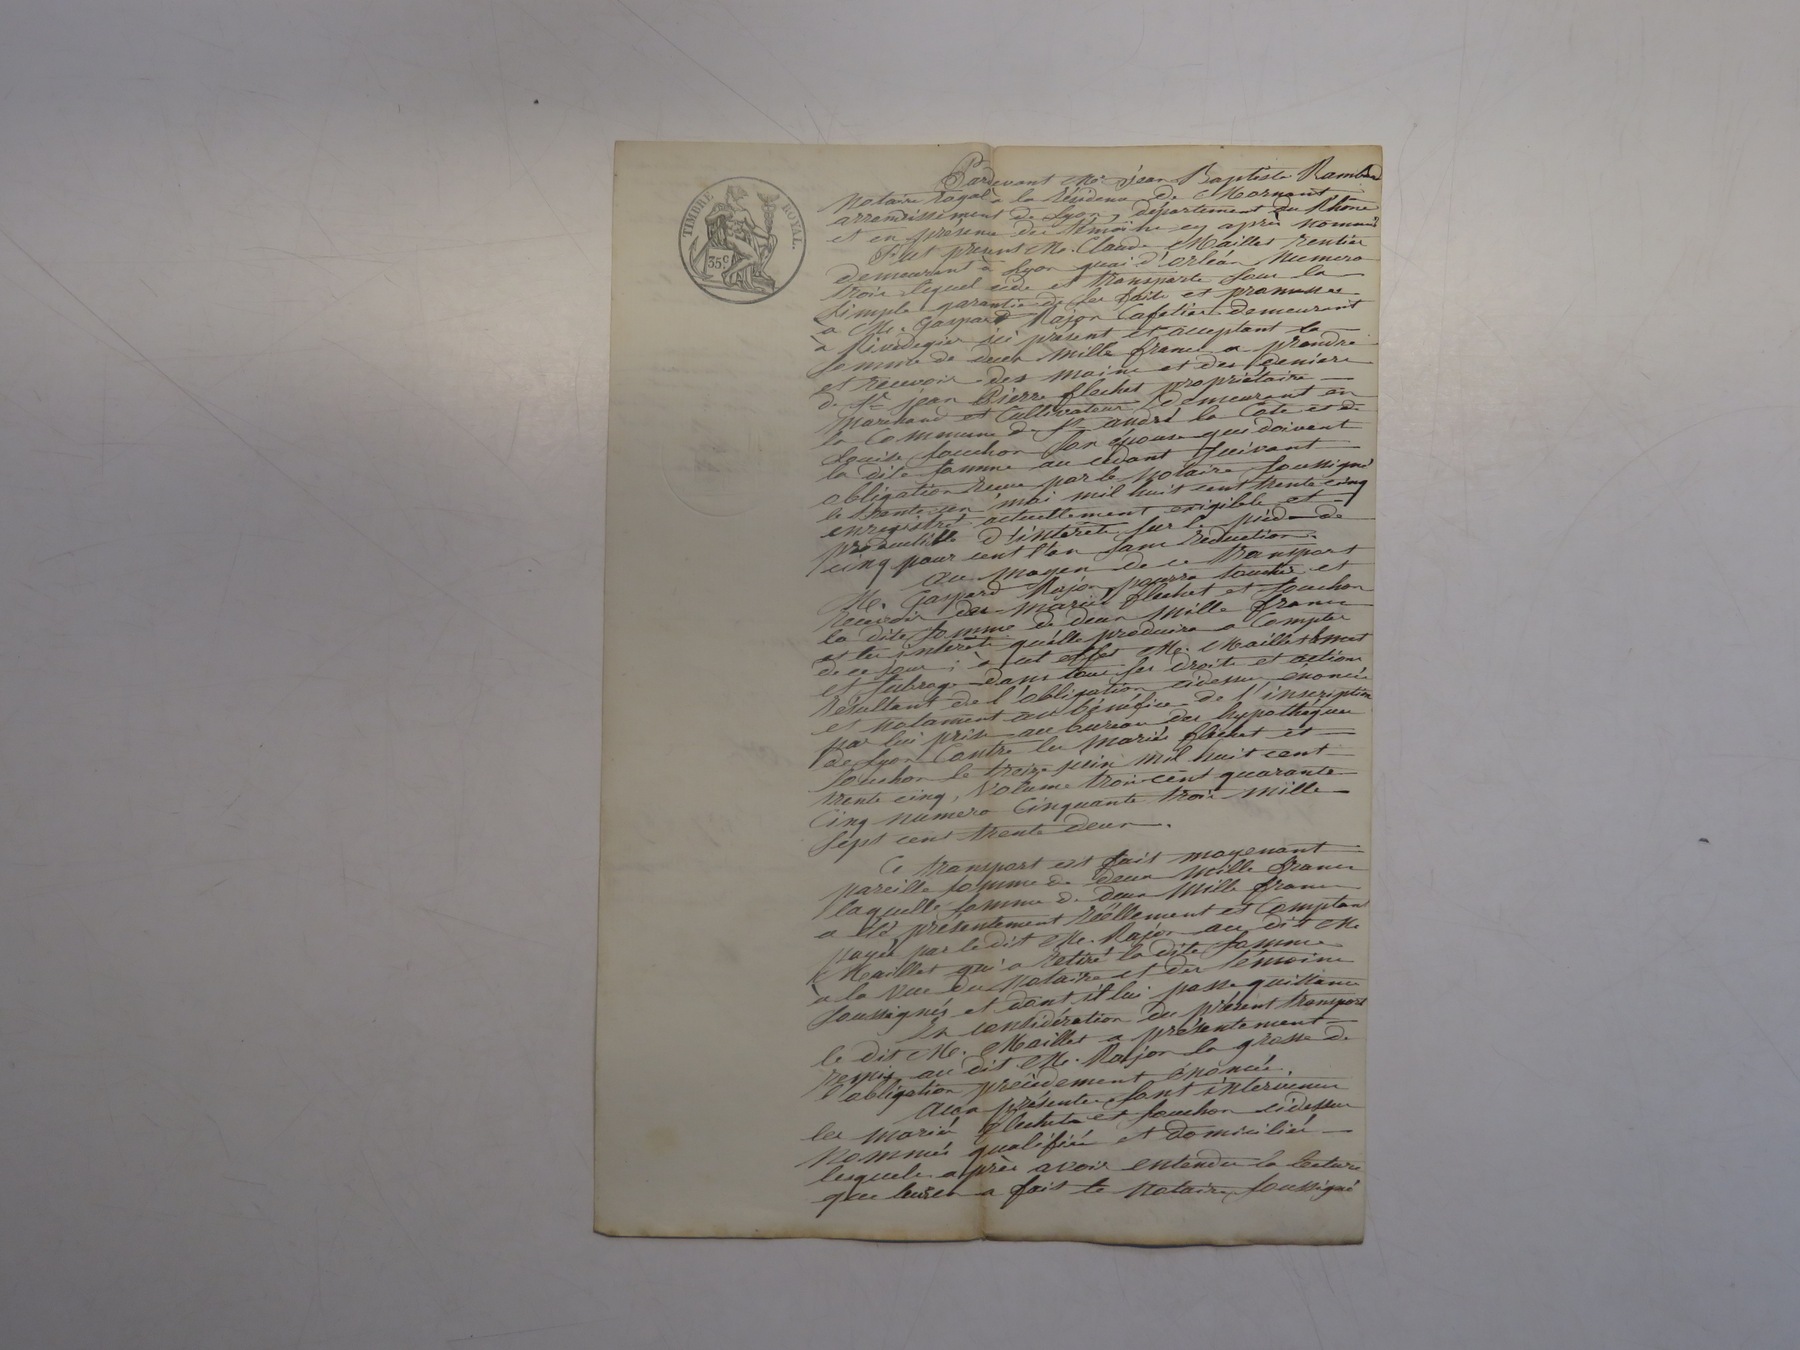 TIMBRE ROYAL.
35c.
Pardevant Me. Jean Baptiste Rambaud
Notaire Royal à la résidence de Mornant
arrondissement de Lyon, département du Rhône
et en présence des témoins cy après nommés
Fut présent Mr. Claude Maillet rentier
demeurant à Lyon quai d'orléans Numero
trois lequel cède et transporte sous la
simple garantie de ses faits et promesses
à Mr. Gaspard Rajon Cafetier demeurant
à Rivedegier ici présent et acceptant la
somme de deux mille francs a prendre
et recevoir des mains et des deniers
de Sr. jean Pierre flechet propriétaire
marchand et Cultivateur, demeurant en
la Commune de St. andré la Cote et de
Louise souchon son épouse qui doivent
la dite somme au cédant suivant
obligation reçue par le Notaire soussigné
le trente un mai mil huit cent trente cinq
enregistré actuellement exigible et
productible d'intérêts sur le pied de
cinq pour cent l'an sans réduction.
Au moyen de ce transport
Mr. Gaspard Rajon, pourra toucher et
recevoir des mariés flechet et souchon
la dite somme de deux mille francs
et les intérêts qu'elle produira a Compter
de ce jour; à cet effet Mr. Maillet met
et subroge dans tous ses droits et actions
résultant de l'obligation cidessus énoncée
et notament au bénéfice de l'inscription
par lui prise au bureau des hypothèques
de Lyon Contre les mariés flechet et
souchon le treize juin mil huit cent
trente cinq, Volume trois cent quarante
Cinq numero Cinquante trois mille
sept cent trente deux.
Ce transport est fait moyenant
pareille somme de deux mille francs
laquelle somme de deux mille francs
a été présentement réellement et Comptant
payée par le dit Mr. Rajon au dit Mr.
Maillet qui a retiré la dite somme
à la vue du Notaire et des témoins
soussignés et dont il lui passe quittance
En considération du présent transport
le dit Mr. Maillet a présentement
remis au dit Mr. Rajon la grosse de
l'obligation précédement énoncée.
Aux présentes sont intervenus
les mariés flechet et souchon cidessus
nommés qualifiés et domiciliés
lesquels après avoir entendu la lecture
que leur en a fait le Notaire soussigné